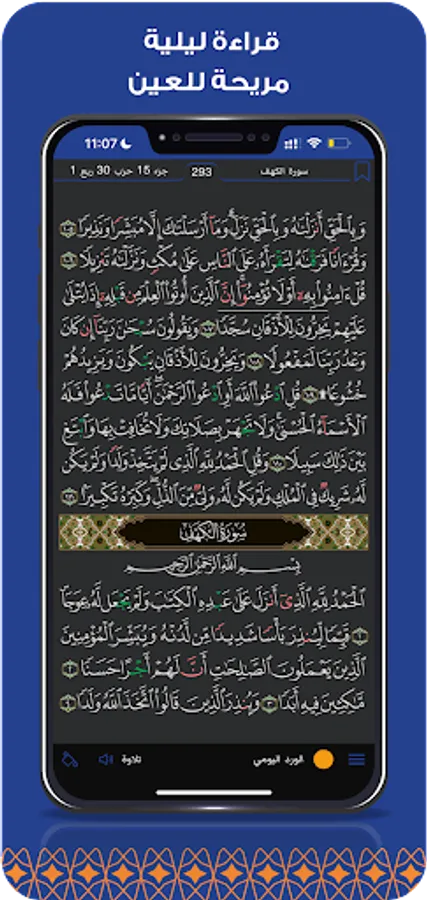 قراءة ليلية
مريحة للعين
11:07
سورة الكهف 293 جزء 15 حزب 30 ربع 1
وَبِالْحَقِّ أَنزَلْنَٰهُ وَبِالْحَقِّ نَزَلَ وَمَا أَرْسَلْنَٰكَ إِلَّا مُبَشِّرًا وَنَذِيرًا ١٠٥
وَقُرْءَانًا فَرَقْنَٰهُ لِتَقْرَأَهُۥ عَلَى النَّاسِ عَلَىٰ مُكْثٍ وَنَزَّلْنَٰهُ تَنزِيلًا ١٠٦
قُلْ ءَامِنُوا بِهِۦ أَوْ لَا تُؤْمِنُوا إِنَّ الَّذِينَ أُوتُوا الْعِلْمَ مِن قَبْلِهِۦ إِذَا يُتْلَىٰ
عَلَيْهِمْ يَخِرُّونَ لِلْأَذْقَانِ سُجَّدًا ١٠٧ وَيَقُولُونَ سُبْحَٰنَ رَبِّنَا إِن كَانَ
وَعْدُ رَبِّنَا لَمَفْعُولًا ١٠٨ وَيَخِرُّونَ لِلْأَذْقَانِ يَبْكُونَ وَيَزِيدُهُمْ
خُشُوعًا ١٠٩ قُلِ ادْعُوا اللَّهَ أَوِ ادْعُوا الرَّحْمَٰنَ أَيًّا مَّا تَدْعُوا فَلَهُ
الْأَسْمَاءُ الْحُسْنَىٰ وَلَا تَجْهَرْ بِصَلَاتِكَ وَلَا تُخَافِتْ بِهَا وَابْتَغِ
بَيْنَ ذَٰلِكَ سَبِيلًا ١١٠ وَقُلِ الْحَمْدُ لِلَّهِ الَّذِي لَمْ يَتَّخِذْ وَلَدًا وَلَمْ يَكُن
لَّهُۥ شَرِيكٌ فِي الْمُلْكِ وَلَمْ يَكُن لَّهُۥ وَلِيٌّ مِّنَ الذُّلِّ وَكَبِّرْهُ تَكْبِيرًا ١١١
سُورَةُ الْكَهْفِ
بِسْمِ اللَّهِ الرَّحْمَٰنِ الرَّحِيمِ
الْحَمْدُ لِلَّهِ الَّذِي أَنزَلَ عَلَىٰ عَبْدِهِ الْكِتَٰبَ وَلَمْ يَجْعَل لَّهُۥ عِوَجَا
١ قَيِّمًا لِّيُنذِرَ بَأْسًا شَدِيدًا مِّن لَّدُنْهُ وَيُبَشِّرَ الْمُؤْمِنِينَ
الَّذِينَ يَعْمَلُونَ الصَّٰلِحَٰتِ أَنَّ لَهُمْ أَجْرًا حَسَنًا ٢
مَّٰكِثِينَ فِيهِ أَبَدًا ٣ وَيُنذِرَ الَّذِينَ قَالُوا اتَّخَذَ اللَّهُ وَلَدًا ٤
الورد اليومي
تلاوة